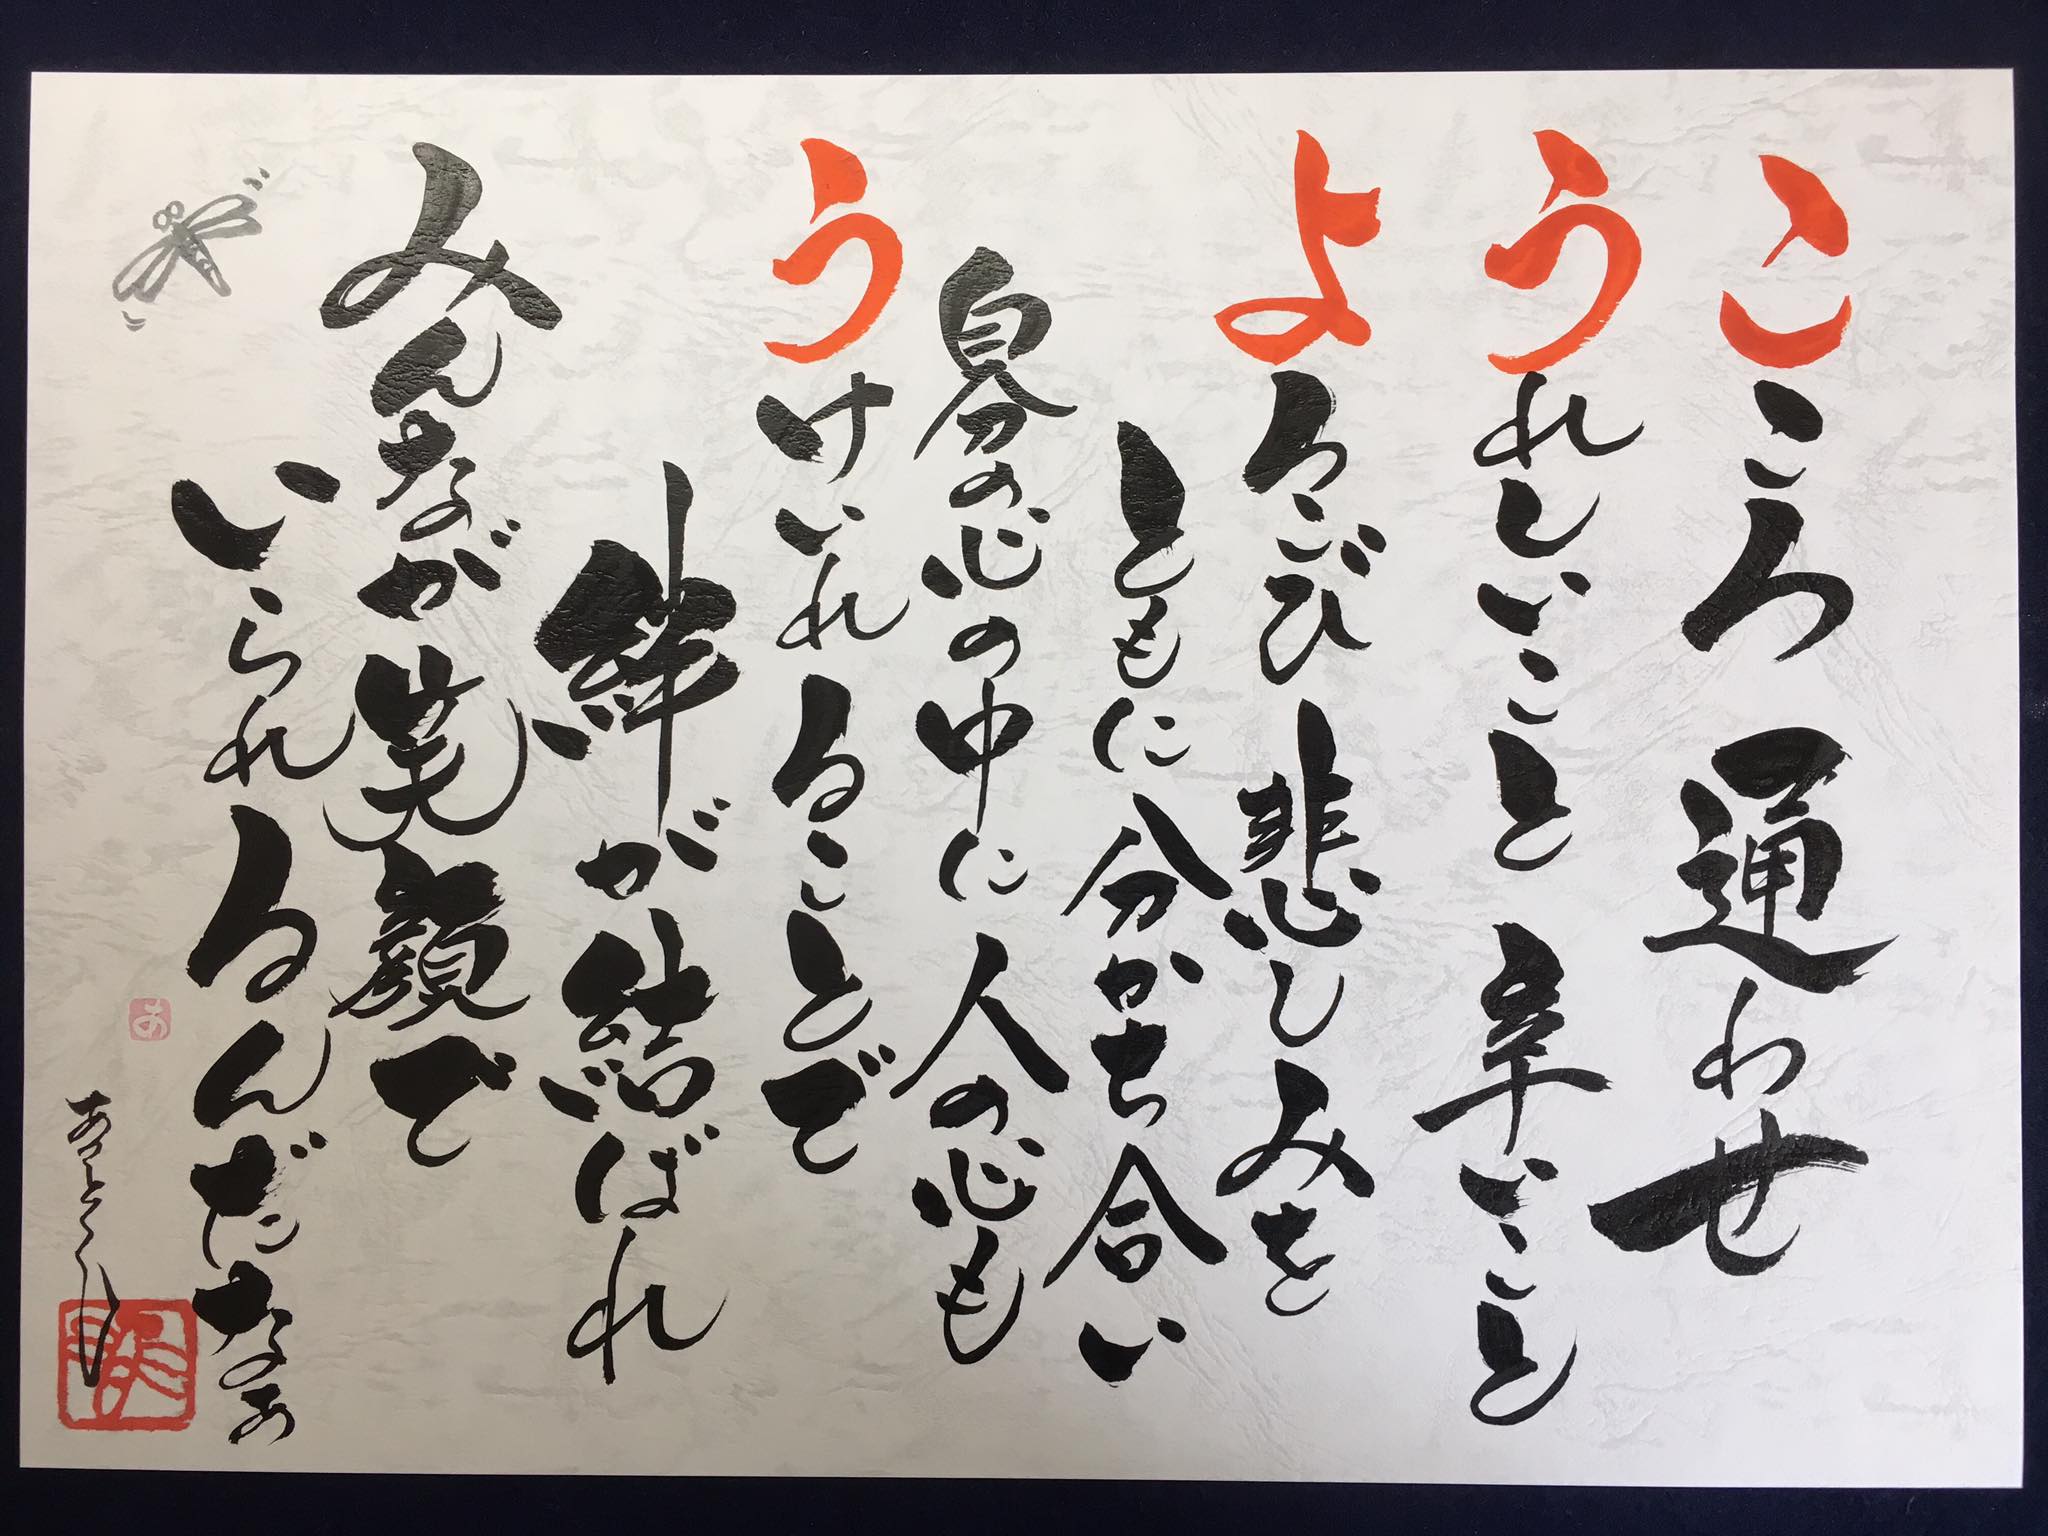 こころ通わせ
うれしいこと辛いこと
よろこび悲しみを
ともに分かち合い
自分の心の中に人の心も
うけいれることで
絆が結ばれ
みんなが笑顔で
いられるんだなぁ
あ